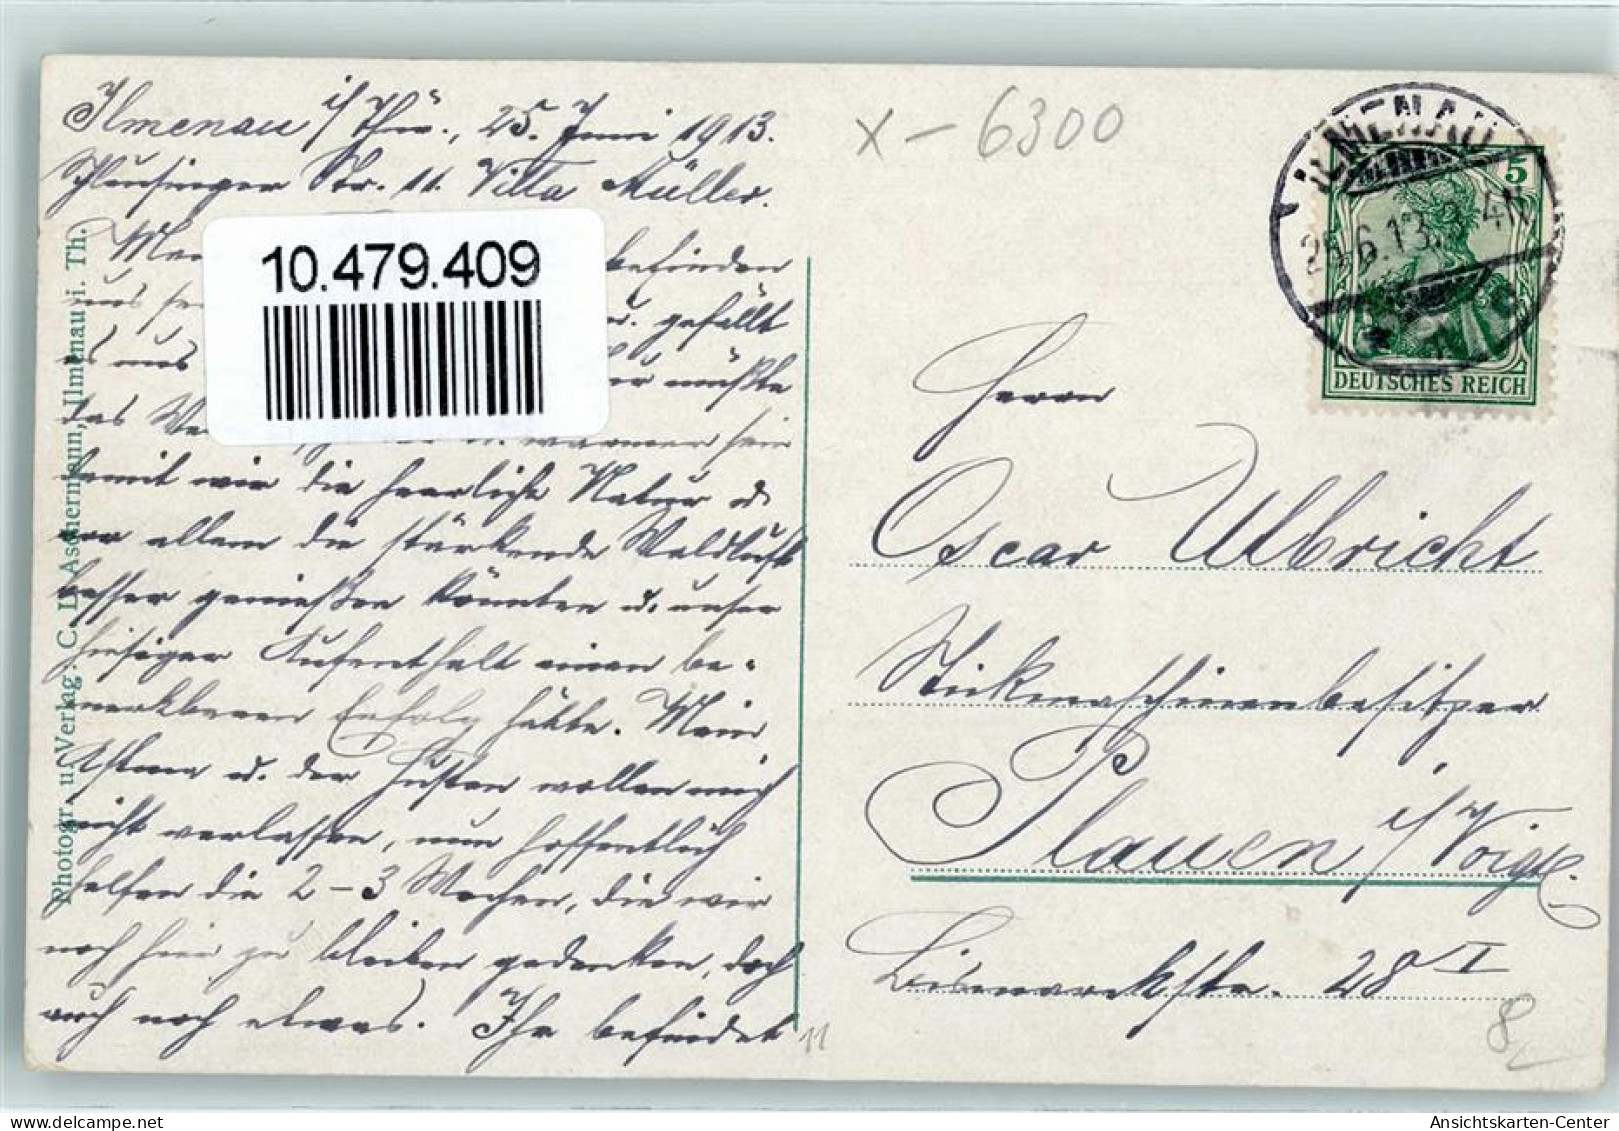 Ilmenau i/Thür., 25. Juni 1913.
Schleusinger Str. 11. Villa Müller.
befinden
uns
u. gefällt
es uns
müßte
das u. wärmer sein
damit wir die herrliche Natur u.
vor allem die stärkende Waldluft
besser genießen könnten u. unser
hiesiger Aufenthalt einen be-
merkbaren Erfolg hätte. Mein
Asthma u. der Husten wollen mich
nicht verlassen, nun hoffentlich
helfen die 2-3 Wochen, die wir
noch hier zu bleiben gedenken, doch
auch noch etwas. Ihr befindet
10.479.409
Photogr. u. Verlag: C. L. Aschermann, Ilmenau i. Th.
x-6300
ILMENAU
25.6.13. 3-4N
5
DEUTSCHES REICH
Herrn
Oscar Ulbricht
Stickmaschinenbesitzer
Plauen i/Voigtl.
Bismarckstr. 28 I
11
8
Ansichtskarten-Center